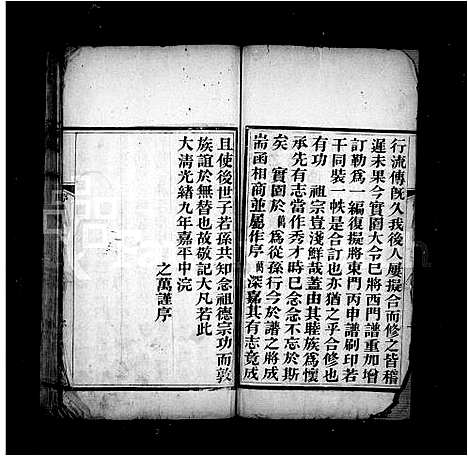 行流傳既久我後人屢擬合而修之皆稽
遲未果今實園大令已將西門譜重加增
訂勒為一編復擬將東門丙申譜刷印若
干同裝一帙是合訂也亦猶之乎合修其
有功　祖宗豈淺鮮哉蓋由其睦族為懷
承先有志當作秀才時已念念不忘於斯
矣　實園於萬為從孫行今於譜之將成
耑函相商並屬作序萬深嘉其有志竟成
且使後世子若孫共知念祖德宗功而敦
族誼於無替也故敬記大凡若此
大清光緒九年嘉平中浣
之萬謹序